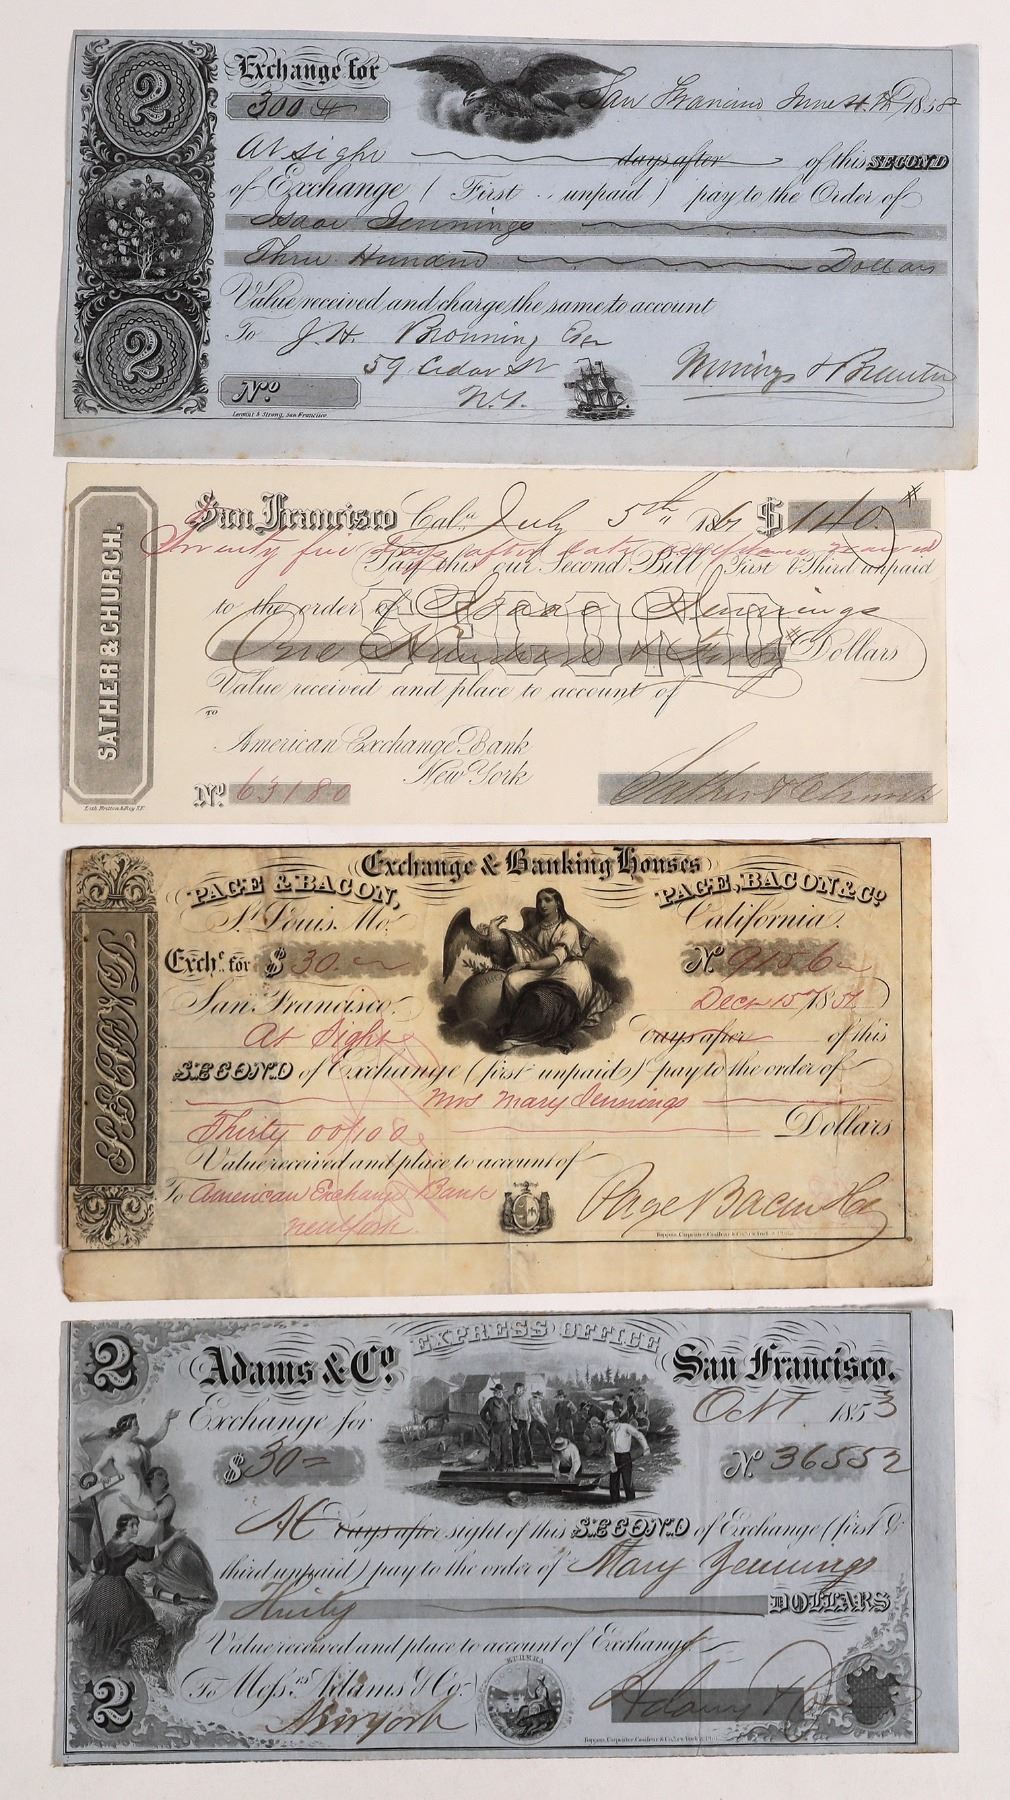 2
Exchange for
300
San Francisco June 1858
At sight days after of this SECOND
of Exchange (First unpaid) pay to the Order of
Isaac Jennings
Three Hundred Dollars
Value received and charge the same to account
To J. H. Browning Esq
59 Cedar St
N.Y.
2
No
San Francisco
SATHER & CHURCH.
San Francisco Cal. July 5th 1861 $ 140
Twenty five days after date acceptance waived
Pay this our Second Bill (First & Third unpaid
to the order of Isaac Jennings
SECOND
One Hundred & Forty Dollars
Value received and place to account of
TO
American Exchange Bank
New York
No 63180
Sather & Church
Lith. Britton & Rey S.F.
Exchange & Banking Houses
PAGE & BACON, PAGE, BACON & Co
St. Louis, Mo. California.
Exche. for $ 30. No 9156
San Francisco. Decr 15 1854
At Sight days after of this
SECOND of Exchange (first unpaid) pay to the order of
Mrs Mary Jennings
Thirty 00/100 Dollars
Value received and place to account of
To American Exchange Bank
New York
Page Bacon & Co
SECOND
Toppan, Carpenter, Casilear & Co.
EXPRESS OFFICE
2
Adams & Co. San Francisco.
Oct 1853
Exchange for
$ 30 No 36552
At days after sight of this SECOND of Exchange (first &
third unpaid) pay to the order of Mary Jennings
Thirty DOLLARS
Value received and place to account of Exchange
EUREKA
To Messrs. Adams & Co.
New York
Adams & Co
2
Toppan, Carpenter, Casilear & Co.